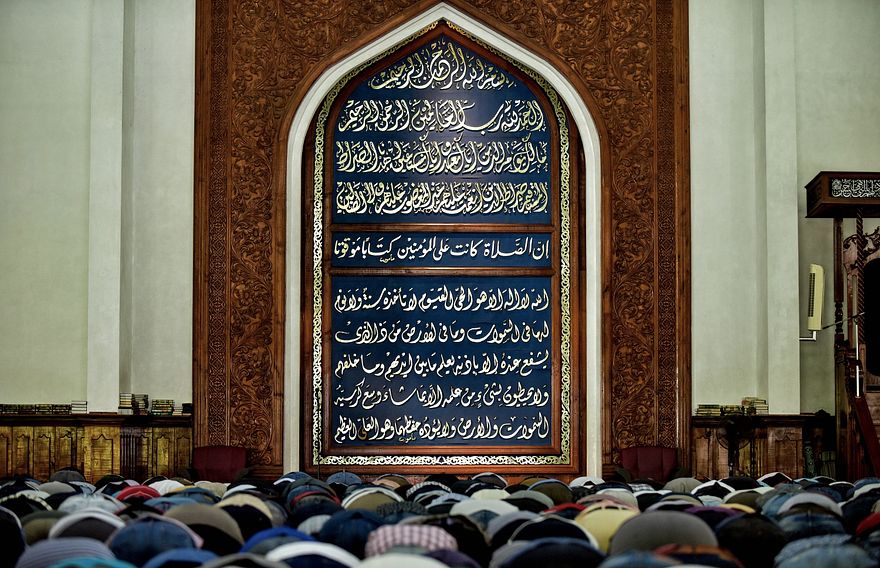 بسم الله الرحمن الرحيم
الحمد لله رب العالمين الرحمن الرحيم
مالك يوم الدين اياك نعبد واياك نستعين اهدنا الصراط
المستقيم صراط الذين انعمت عليهم غير المغضوب عليهم ولا الضالين
إن الصلاة كانت على المؤمنين كتابا موقوتا
الله لا اله الا هو الحي القيوم لا تأخذه سنة ولا نوم
له ما في السموات وما في الأرض من ذا الذي
يشفع عنده الا باذنه يعلم ما بين ايديهم وما خلفهم
ولا يحيطون بشيء من علمه الا بما شاء وسع كرسيه
السموات والأرض ولا يؤده حفظهما وهو العلي العظيم